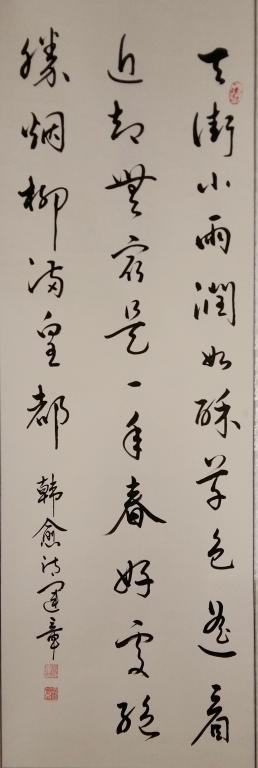 天街小雨潤如酥草色遙看
近却無最是一年春好處絕
勝烟柳滿皇都
韓愈詩運章